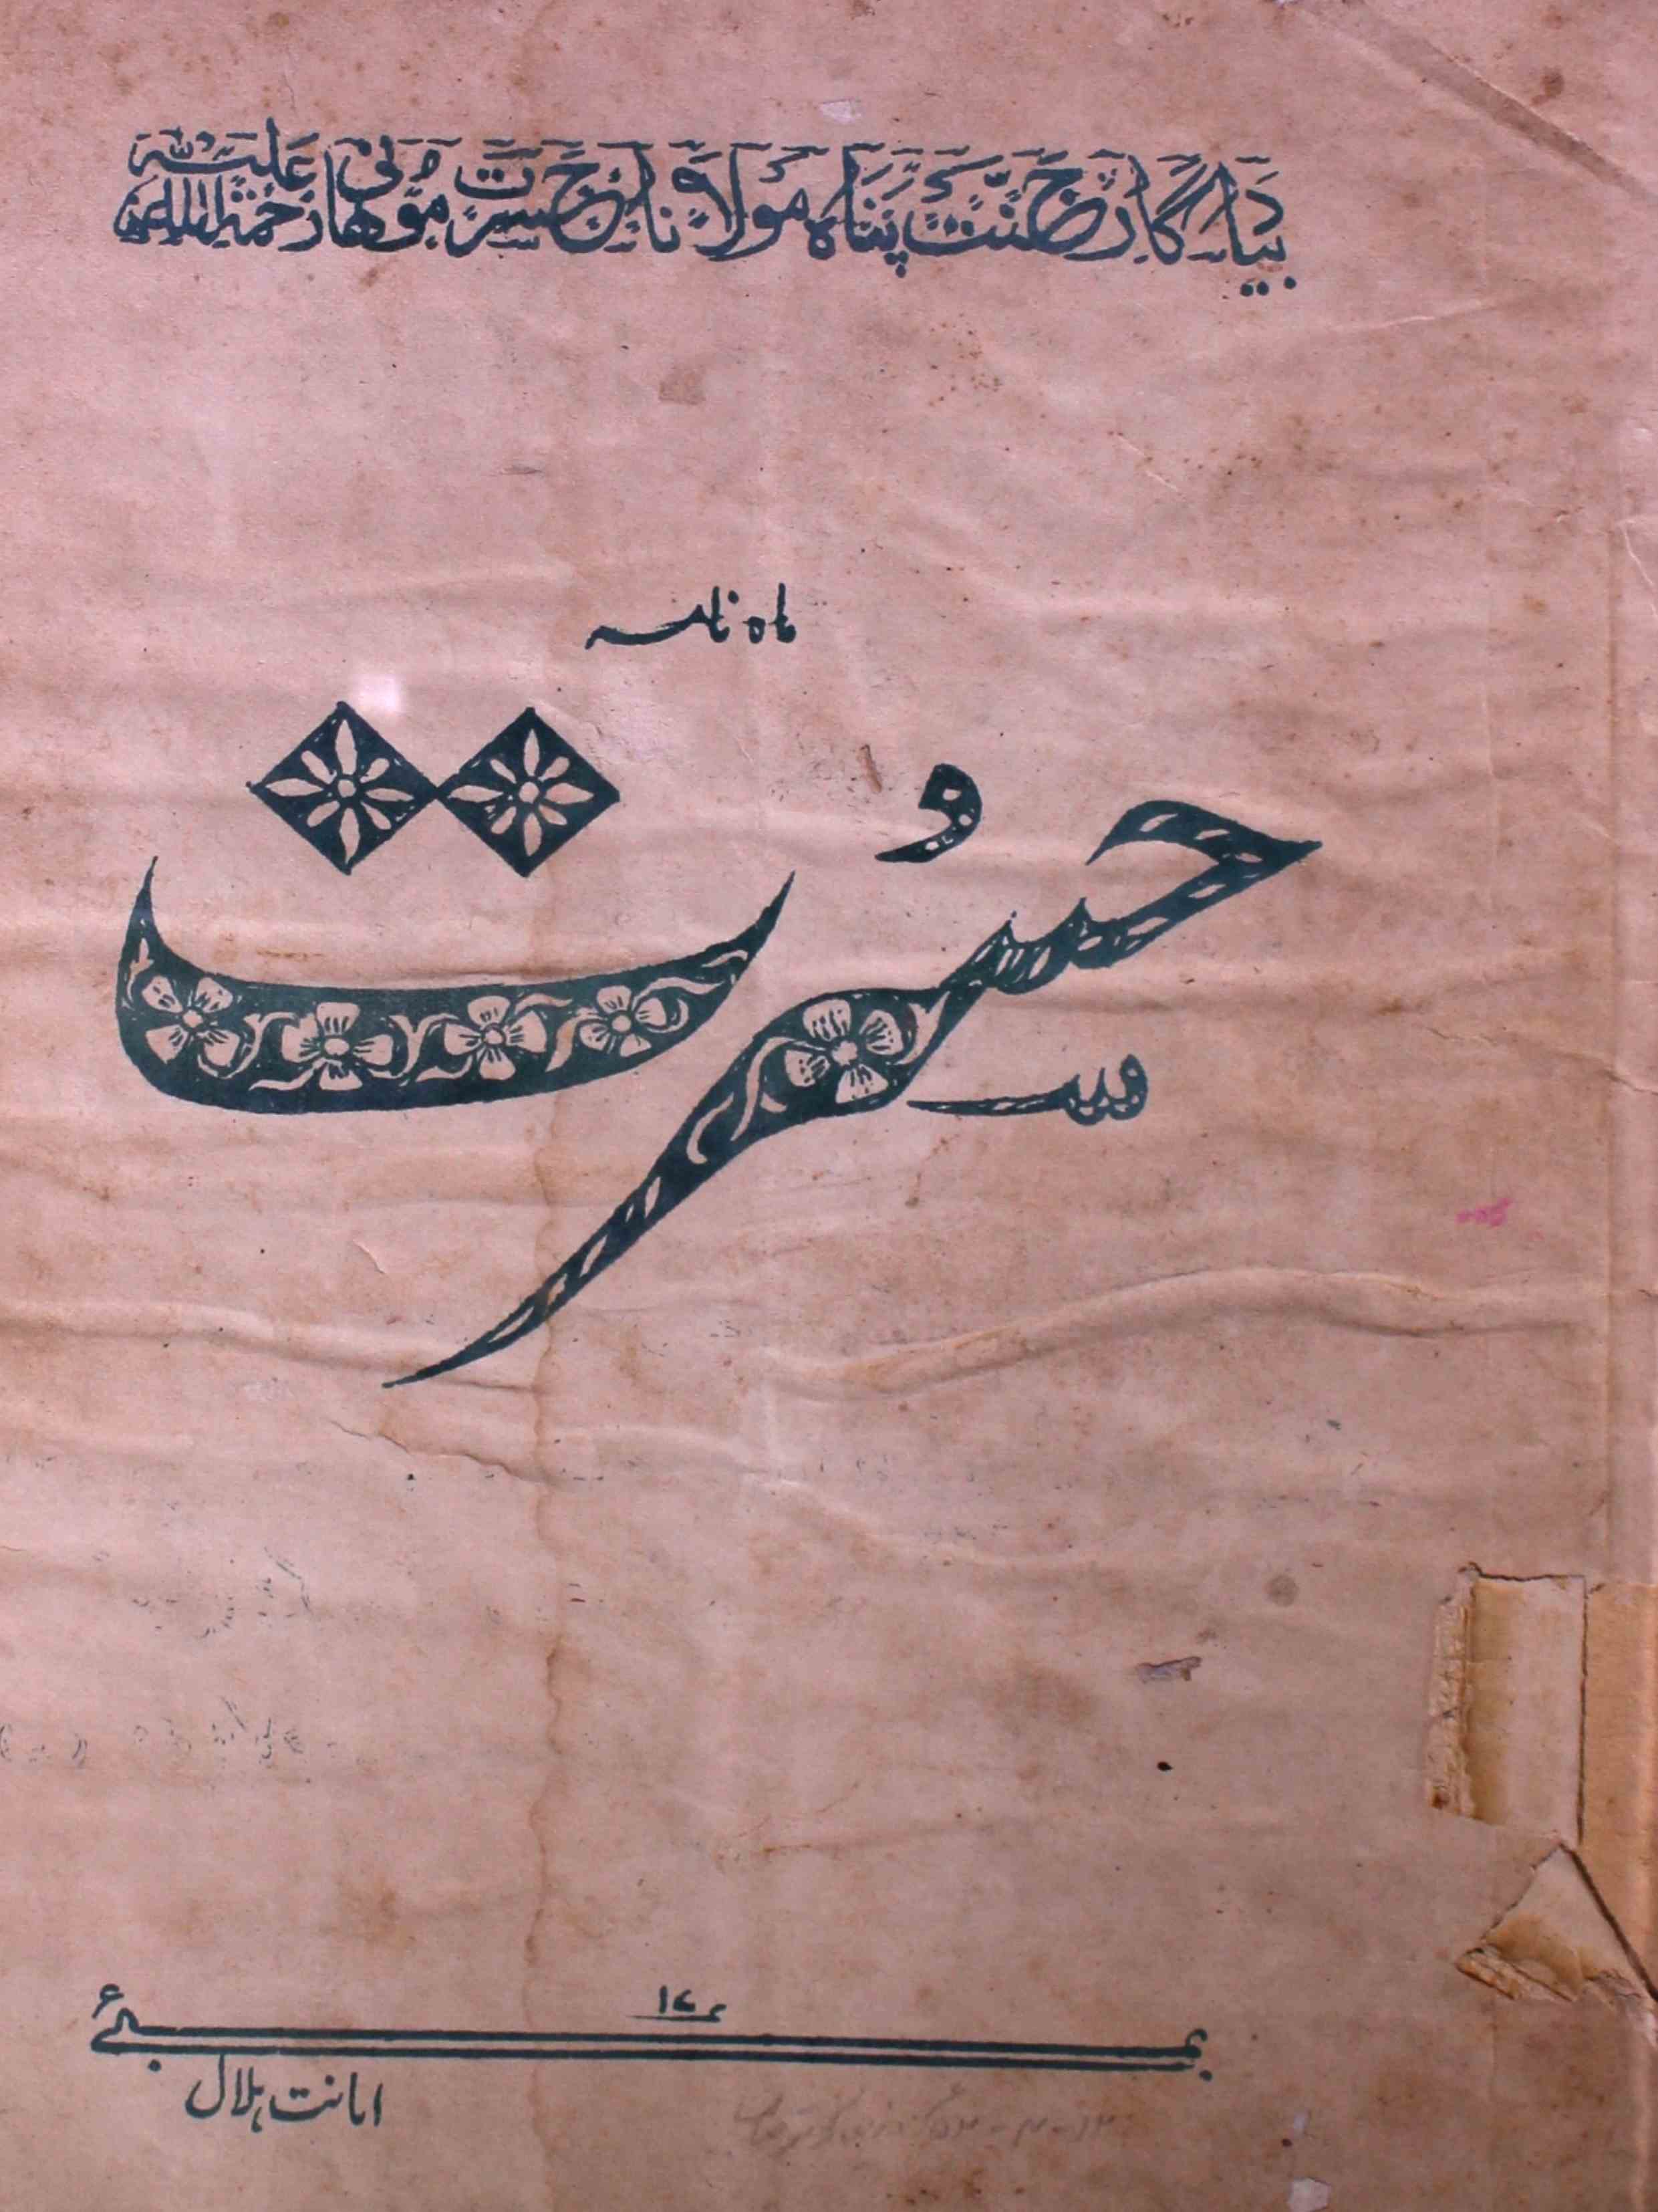 بیادگار جنّت پناہ مولانا حسرت موہانی رحمۃ اللہ علیہ
ماہ نامہ
حسرت
بمبئی
امانت ہلال